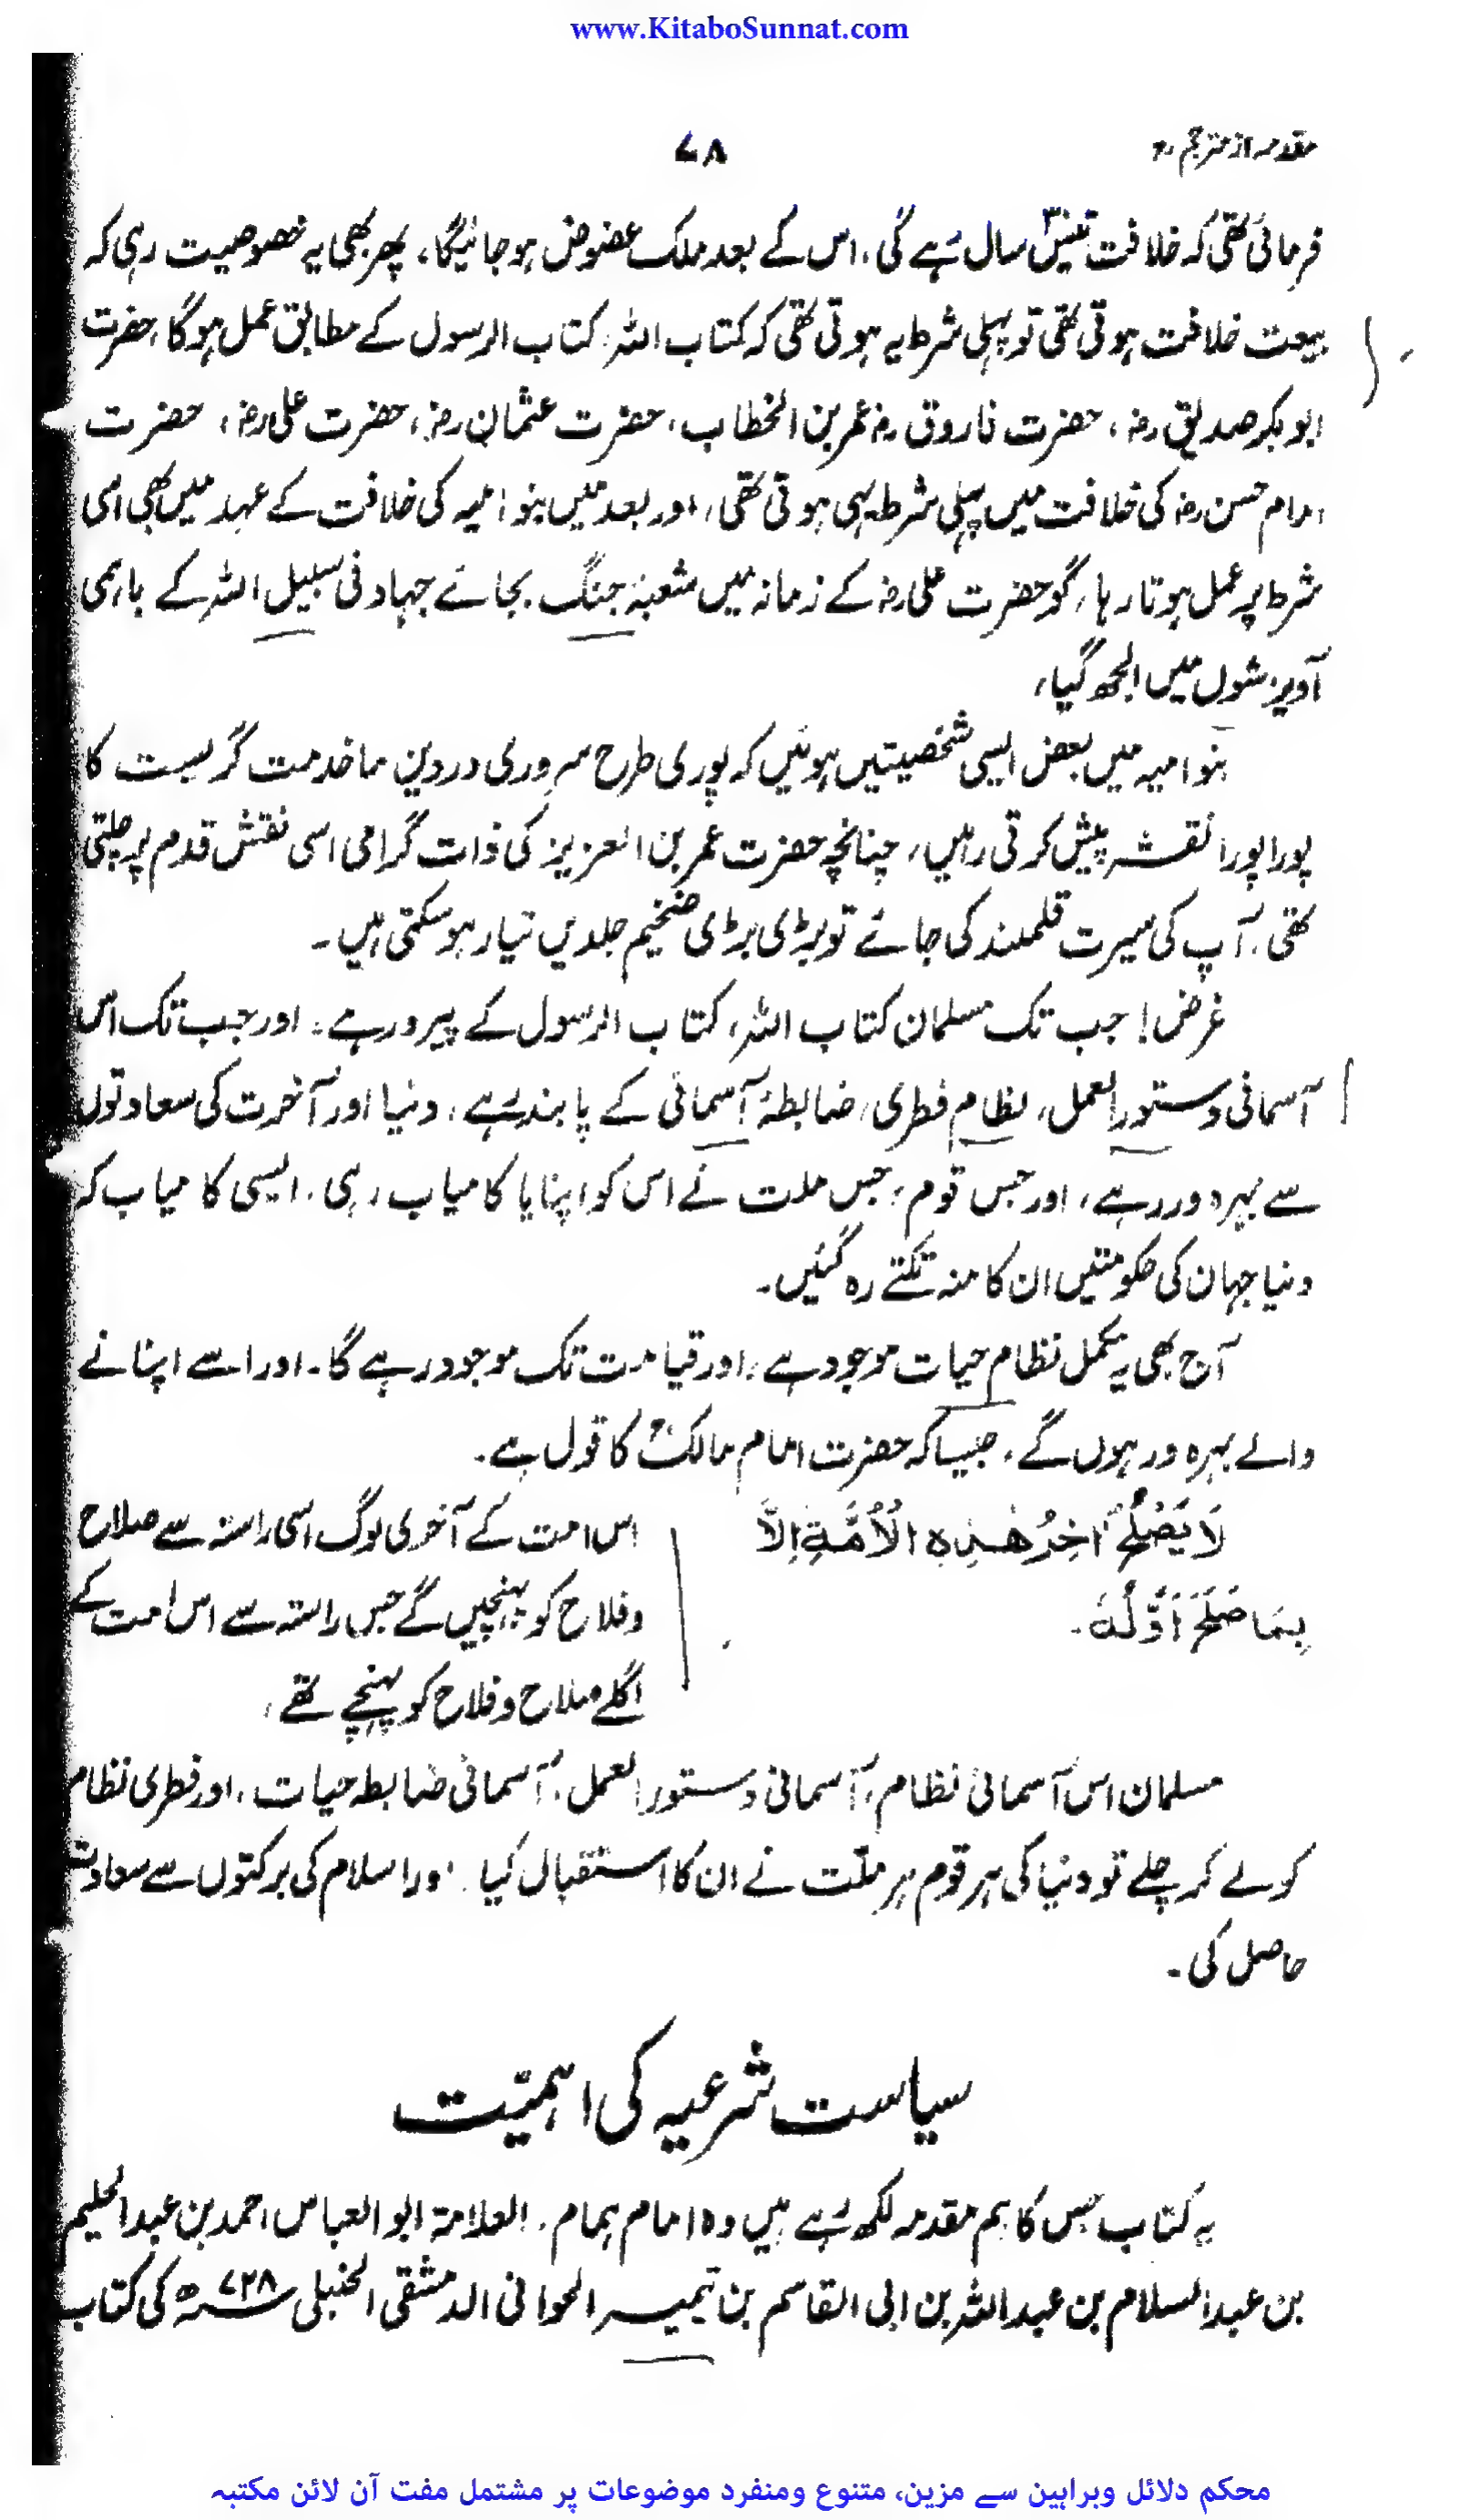 www.KitaboSunnat.com
مقدمہ از مترجم
۷۸
فرمائی تھی کہ خلافت تیس سال رہے گی، اس کے بعد ملک عضوض ہو جائیگا، پھر بھی یہ خصوصیت رہی کہ
بیعت خلافت ہوتی تھی تو پہلی شرط یہ ہوتی تھی کہ کتاب اللہ، کتاب الرسول کے مطابق عمل ہوگا، حضرت
ابوبکر صدیق رضہ، حضرت فاروق رضہ عمر بن الخطاب، حضرت عثمان رضہ، حضرت علی رضہ، حضرت
امام حسن رضہ کی خلافت میں پہلی شرط یہی ہوتی تھی، اور بعد میں بنو امیہ کی خلافت کے عہد میں بھی اسی
شرط پر عمل ہوتا رہا، گو حضرت علی رضہ کے زمانہ میں شعبۂ جنگ بجائے جہاد فی سبیل اللہ کے باہمی
آویزشوں میں الجھ گیا،
بنو امیہ میں بعض ایسی شخصیتیں ہوئیں کہ پوری طرح سروری در دین ما خدمت گریست کا
پورا پورا نقشہ پیش کرتی رہیں، چنانچہ حضرت عمر بن العزیز کی ذات گرامی اسی نقش قدم پر چلتی
تھی، آپ کی سیرت قلمبند کی جائے تو بڑی بڑی ضخیم جلدیں تیار ہو سکتی ہیں۔
غرض! جب تک مسلمان کتاب اللہ، کتاب الرسول کے پیرو رہے۔ اور جب تک اس
آسمانی دستور العمل، نظام فطری، ضابطۂ آسمانی کے پابند رہے، دنیا اور آخرت کی سعادتوں
سے بہرہ ور رہے، اور جس قوم، جس ملت نے اس کو اپنایا کامیاب رہی، ایسی کامیاب کہ
دنیا جہان کی حکومتیں ان کا منہ تکتے رہ گئیں۔
آج بھی یہ مکمل نظام حیات موجود ہے، اور قیامت تک موجود رہے گا۔ اور اسے اپنانے
والے بہرہ ور ہوں گے، جیسا کہ حضرت امام مالکؒ کا قول ہے۔
لَا يَصْلُحُ اٰخِرُ هٰذِهِ الْاُمَّةِ اِلَّا
بِمَا صَلَحَ اَوَّلُهٗ۔
اس امت کے آخری لوگ اسی راستہ سے صلاح
وفلاح کو پہنچیں گے جس راستہ سے اس امت کے
اگلے صلاح وفلاح کو پہنچے تھے،
مسلمان اس آسمانی نظام، آسمانی دستور العمل، آسمانی ضابطہ حیات، اور فطری نظام
کو لے کر چلے تو دنیا کی ہر قوم ہر ملّت نے ان کا استقبال کیا، اور اسلام کی برکتوں سے سعادت
حاصل کی۔
سیاست شرعیہ کی اہمیّت
یہ کتاب جس کا ہم مقدمہ لکھ رہے ہیں وہ امام ہمام، العلامۃ ابو العباس احمد بن عبد الحلیم
بن عبد السلام بن عبد اللہ بن ابی القاسم بن تیمیہ الحرانی الدمشقی الحنبلی ۷۲۸ھ کی کتاب
محکم دلائل وبراہین سے مزین، متنوع ومنفرد موضوعات پر مشتمل مفت آن لائن مکتبہ